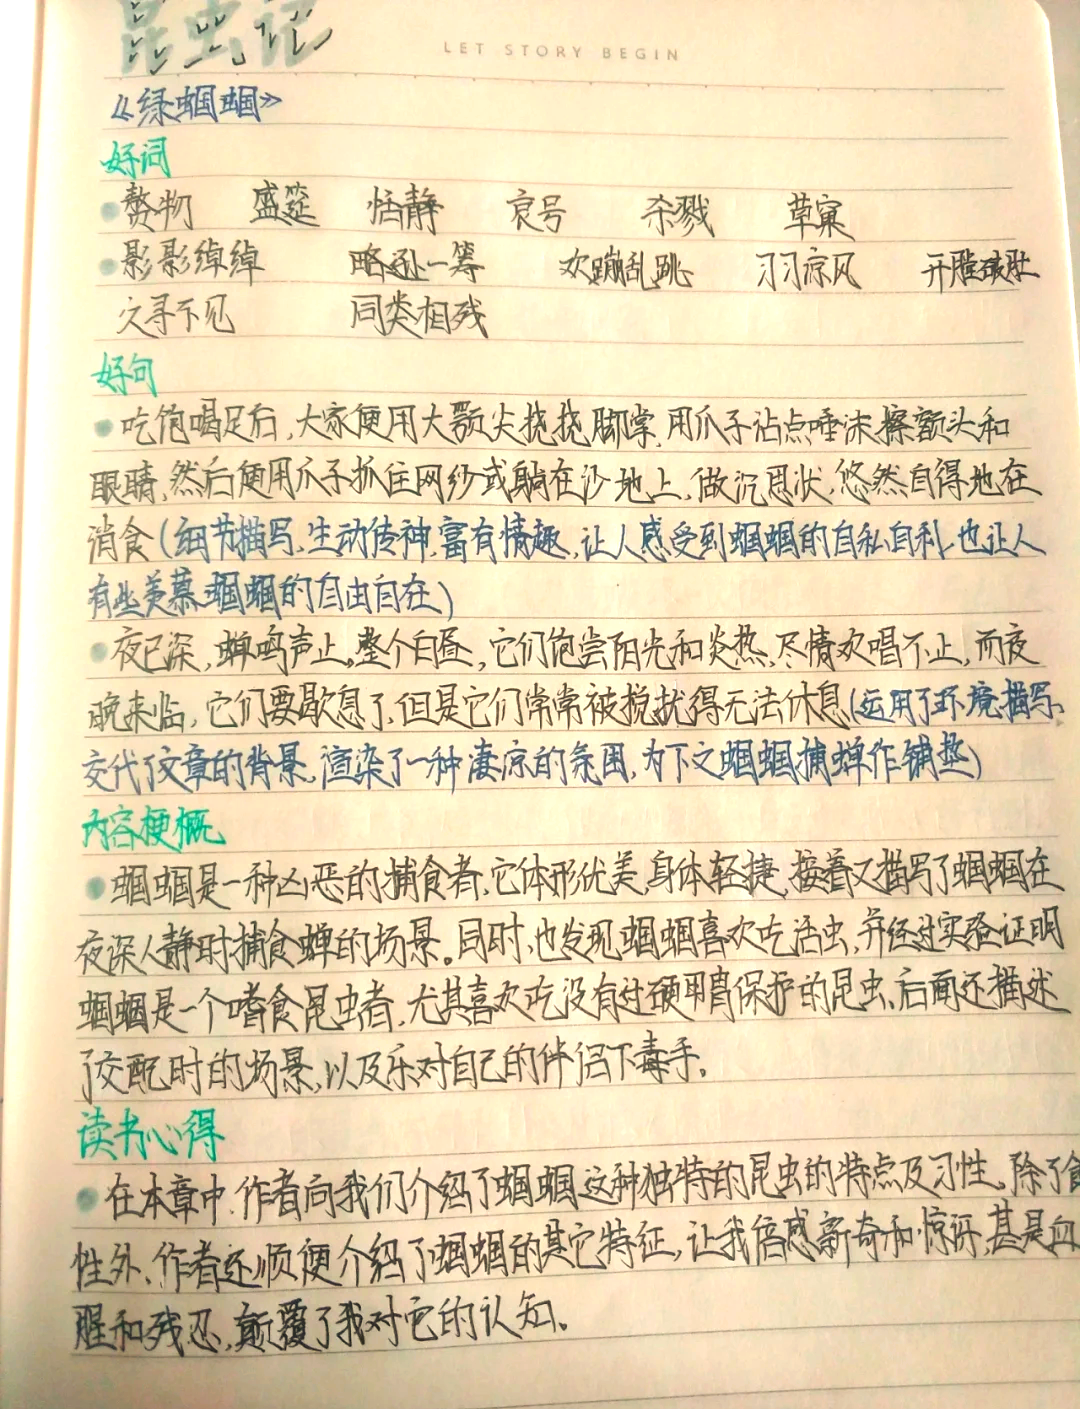 昆虫记
LET STORY BEGIN
《绿蝈蝈》
好词
赘物 盛筵 恬静 哀号 杀戮 草窠
影影绰绰 略逊一筹 欢蹦乱跳 习习凉风 开膛破肚
欠寻不见 同类相残
好句
吃饱喝足后,大家便用大颚尖挠挠脚掌,用爪子沾点唾沫擦额头和
眼睛,然后便用爪子抓住网纱或躺在沙地上,做沉思状,悠然自得地在
消食(细节描写,生动传神,富有情趣,让人感受到蝈蝈的自私自利,也让人
有些羡慕蝈蝈的自由自在)
夜已深,蝉鸣声止。整个白昼,它们饱尝阳光和炎热,尽情欢唱不止,而夜
晚来临,它们要歇息了,但是它们常常被搅扰得无法休息(运用了环境描写,
交代了文章的背景,渲染了一种凄凉的氛围,为下文蝈蝈捕蝉作铺垫)
内容梗概
蝈蝈是一种凶恶的捕食者,它体形优美,身体轻捷,接着又描写了蝈蝈在
夜深人静时捕食蝉的场景。同时,也发现蝈蝈喜欢吃活虫,并经过实验证明
蝈蝈是一个嗜食昆虫者,尤其喜欢吃没有过硬甲胄保护的昆虫,后面还描述
了交配时的场景,以及乐对自己的伴侣下毒手。
读书心得
在本章中,作者向我们介绍了蝈蝈这种独特的昆虫的特点及习性。除了食
性外,作者还顺便介绍了蝈蝈的其它特征,让我倍感新奇和惊讶,甚是血
腥和残忍,颠覆了我对它的认知。